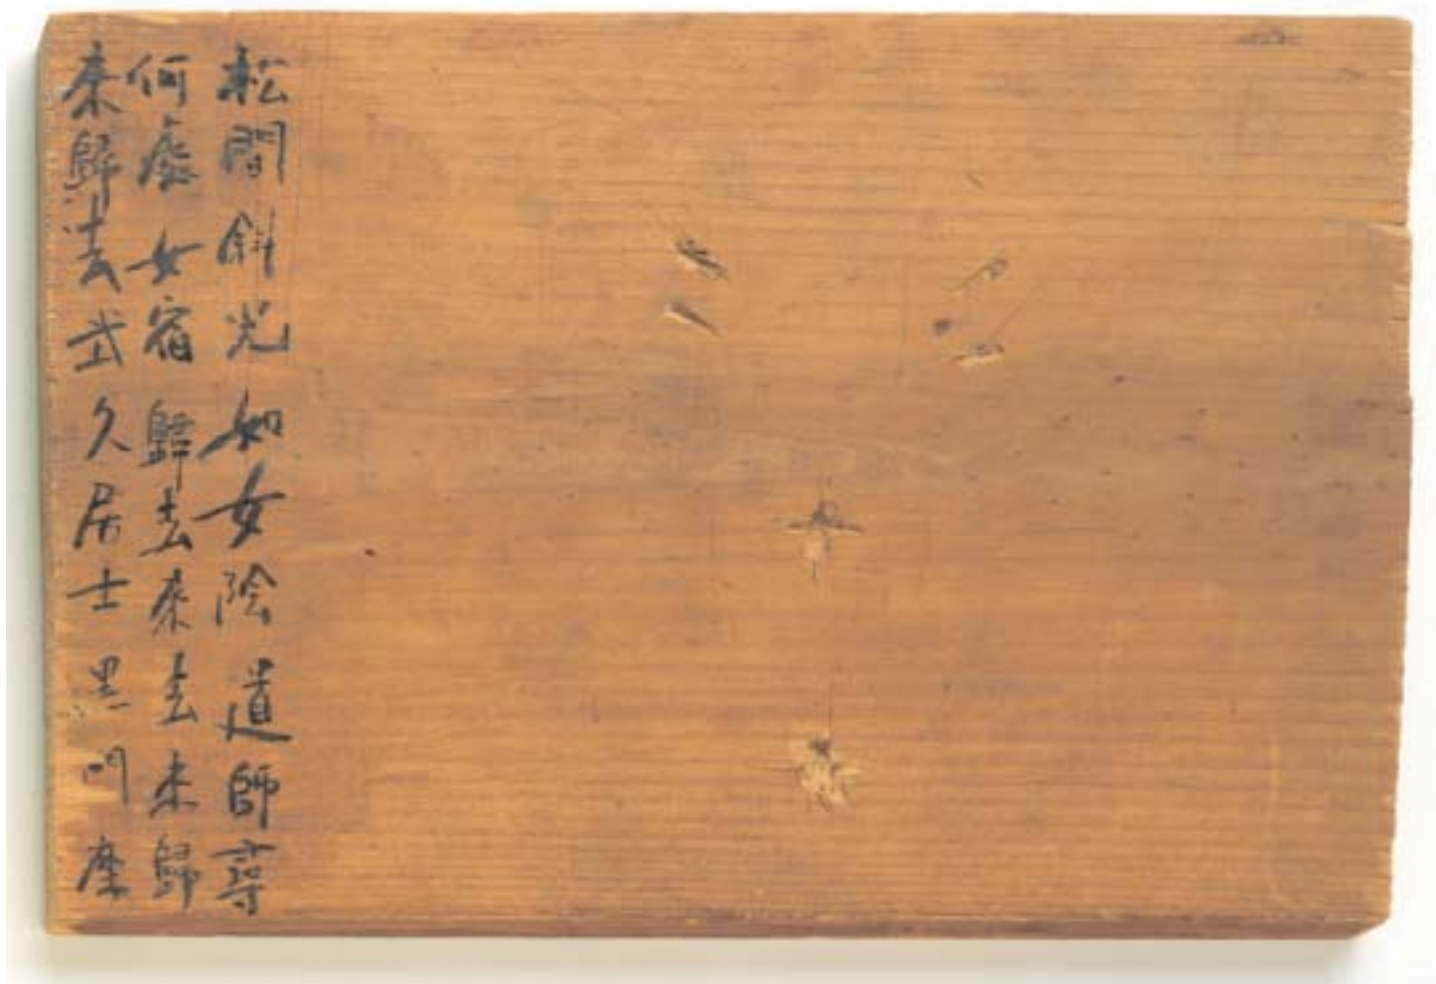 松間斜光如女陰道師尋
何處女宿歸去來去来歸
來歸去武久居士黒門摩